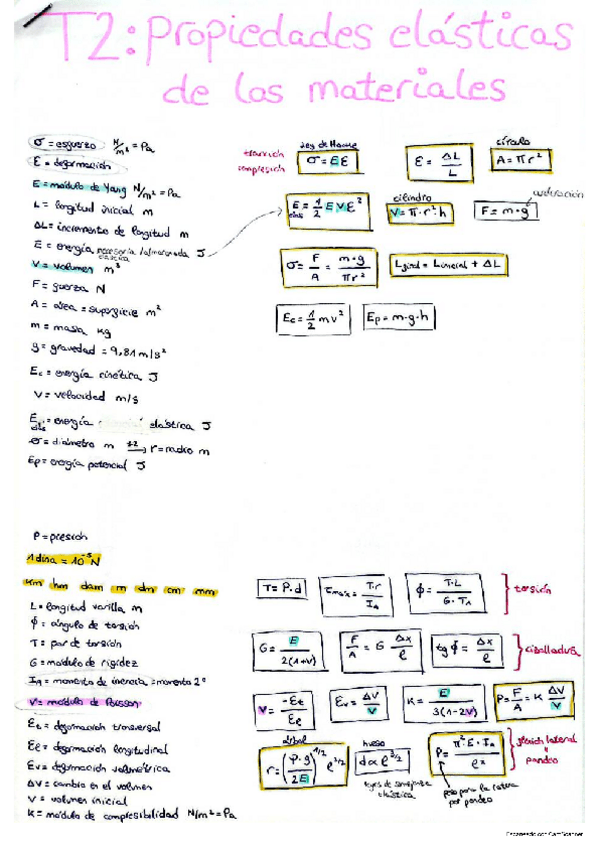 T2: Propiedades elásticas
de los materiales
σ = esfuerzo N/m² = Pa
ε = deformación
E = módulo de Yang N/m² = Pa
L = longitud inicial m
ΔL = incremento de longitud m
E = energía necesaria /almacenada J
elástica
V = volumen m³
F = fuerza N
A = área = superficie m²
m = masa kg
g = gravedad = 9,81 m/s²
Ec = energía cinética J
v = velocidad m/s
E elás = energía elástica J
σ = diámetro m :2 → r = radio m
Ep = energía potencial J
tracción
compresión
Ley de Hooke
σ = E ε
ε = ΔL / L
círculo
A = π r²
E elás = 1/2 E V ε²
cilindro
V = π · r² · h
aceleración
F = m · g
σ = F/A = m·g / πr²
L final = L inicial + ΔL
Ec = 1/2 m v²
Ep = m · g · h
P = presión
1 dina = 10⁻⁵ N
km hm dam m dm cm mm
L = longitud varilla m
ϕ = ángulo de torsión
T = par de torsión
G = módulo de rigidez
IA = momento de inercia = momento 2º
ν = módulo de Poisson
Et = deformación transversal
Eℓ = deformación longitudinal
Ev = deformación volumétrica
ΔV = cambio en el volumen
V = volumen inicial
K = módulo de compresibilidad N/m² = Pa
T = P · d
τmáx = T·r / IA
ϕ = T·L / G·IA
torsión
G = E / 2(1+ν)
F/A = G Δx/ℓ
tg ϕ = Δx/ℓ
cizalladura
ν = -Et / Eℓ
Ev = ΔV / V
K = E / 3(1-2ν)
P = F/A = K ΔV/V
árbol
r = (ρ·g / 2E)^1/2 ℓ^3/2
hueso
d α ℓ^3/2
leyes de semejanza
elástica
P = π²·E·IA / ℓ²
peso para la rotura
por pandeo
flexión lateral
o
pandeo
Escaneado con CamScanner